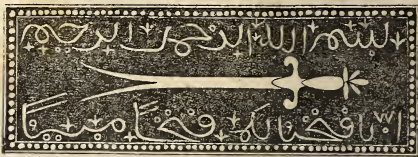 بسم الله الرحمن الرحيم
انا فتحنا لك فتحا مبينا